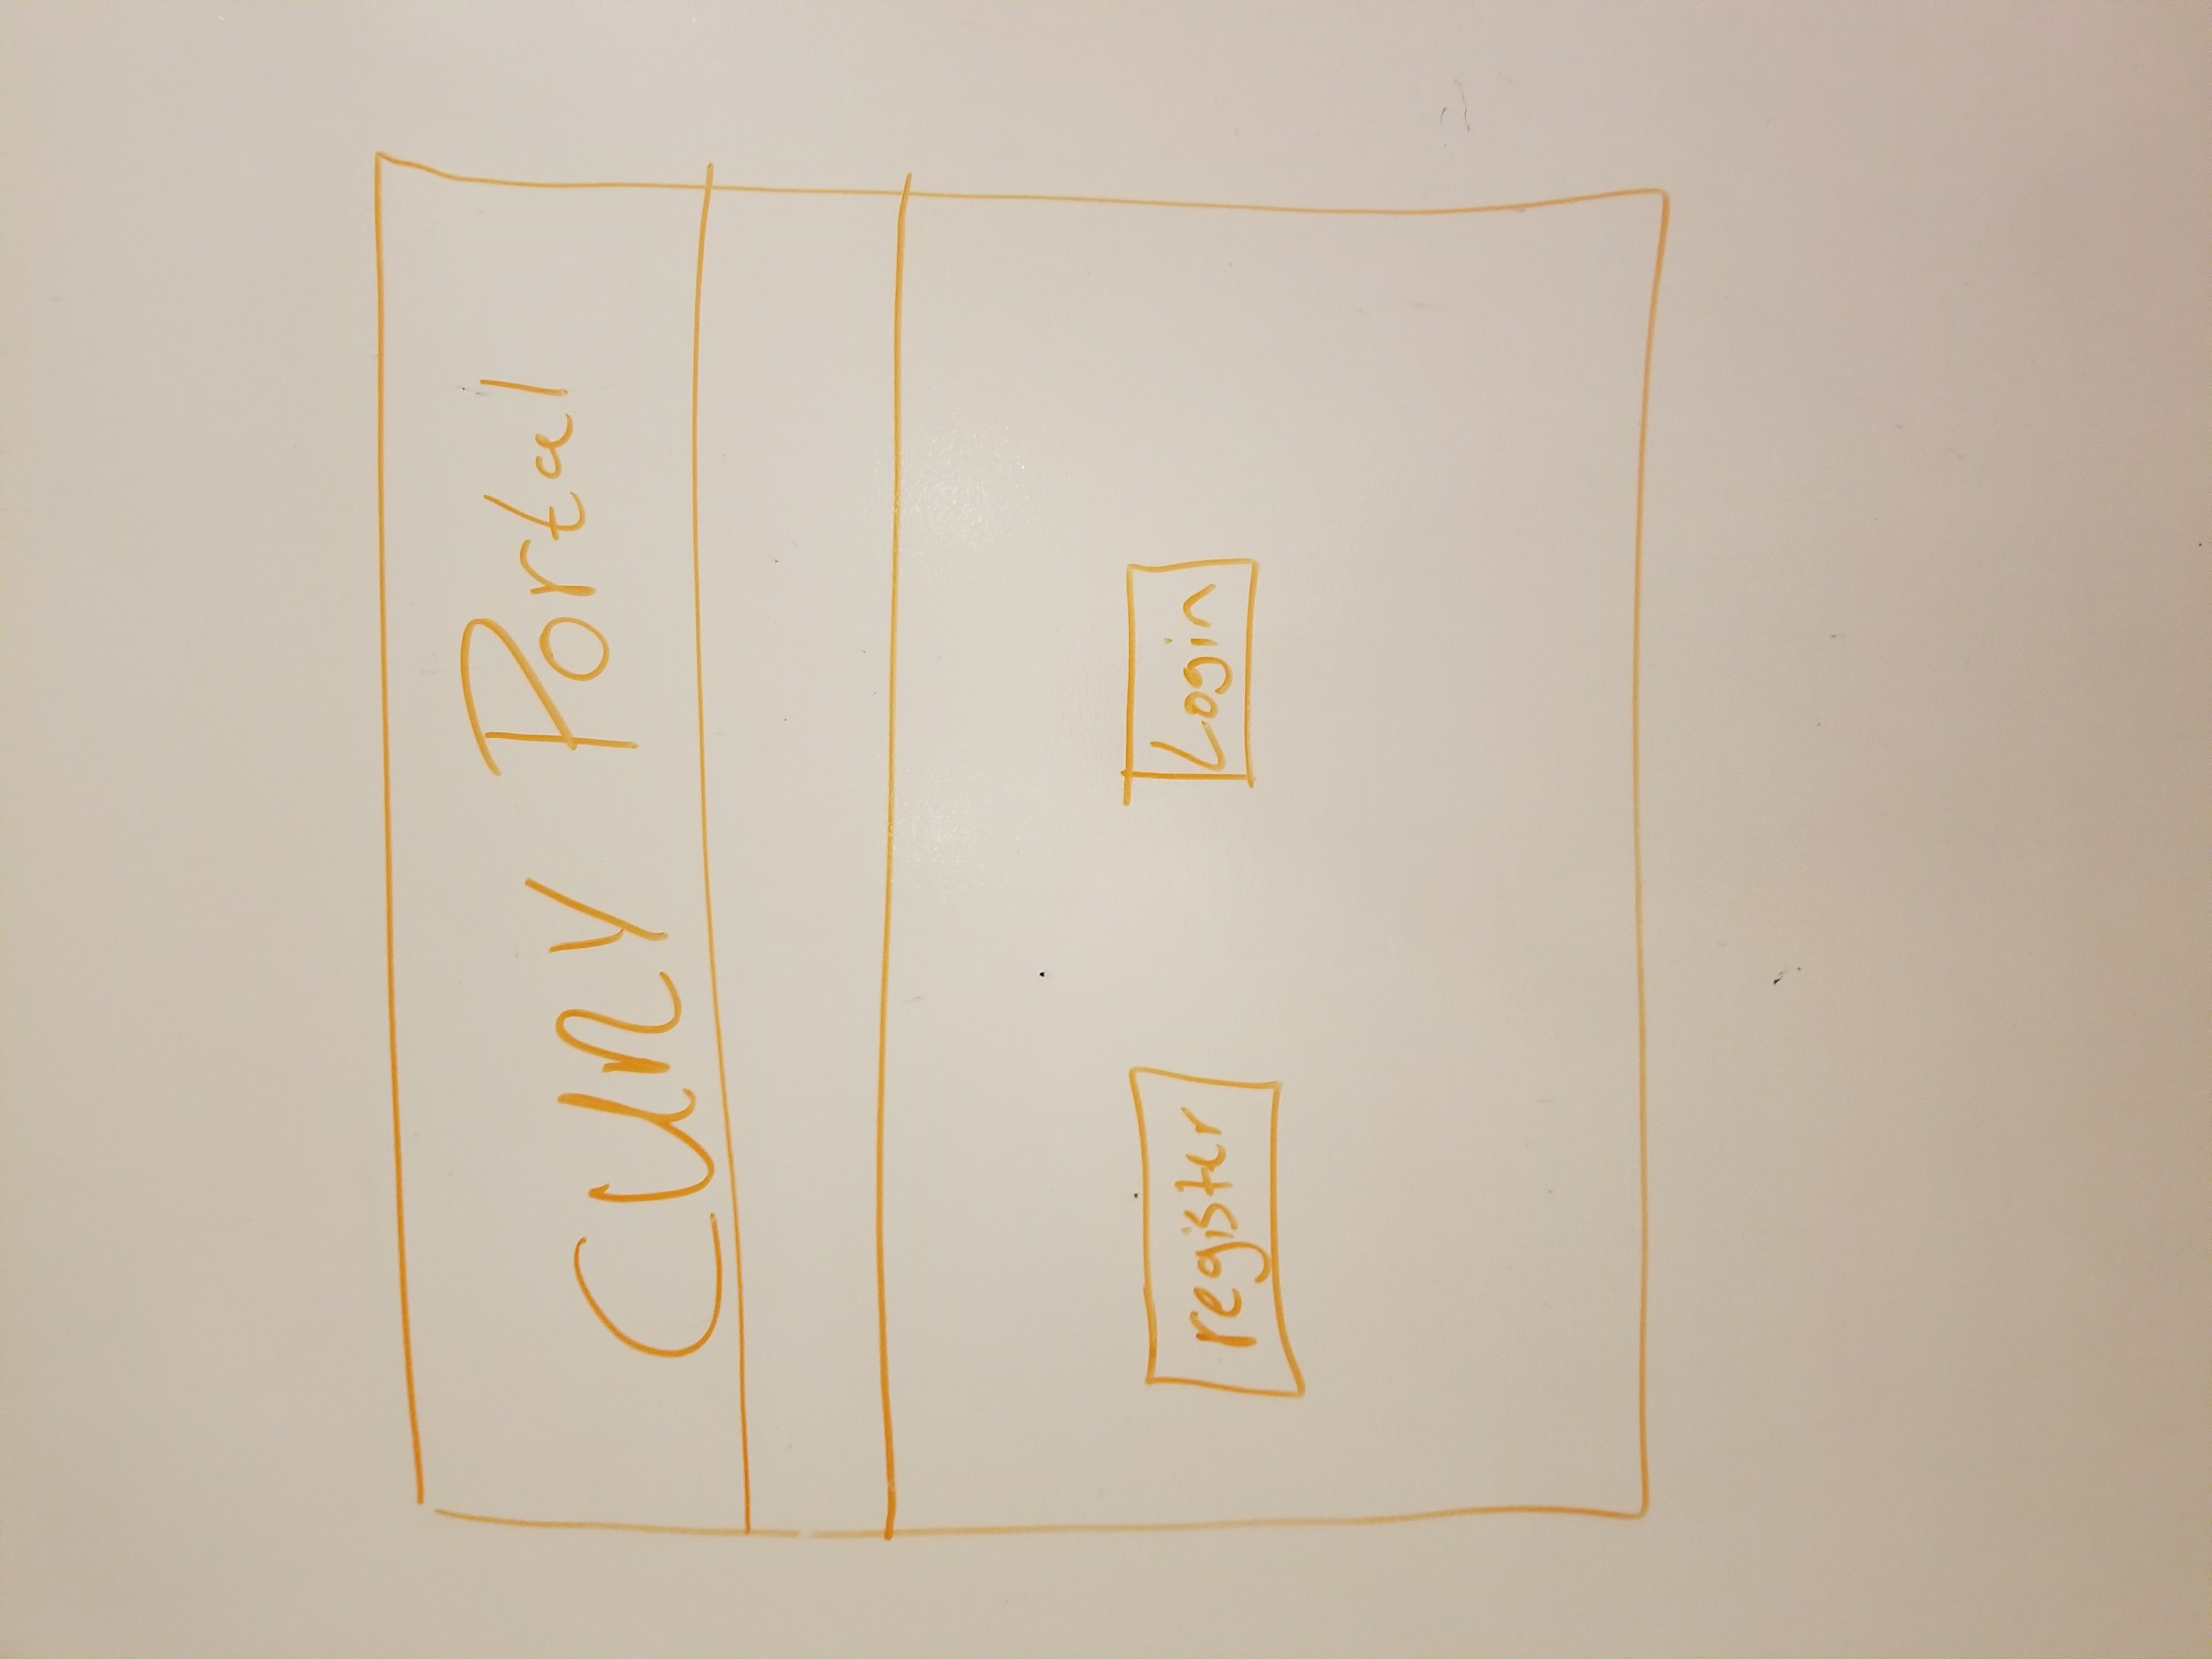 CUNY Portal
register
Login